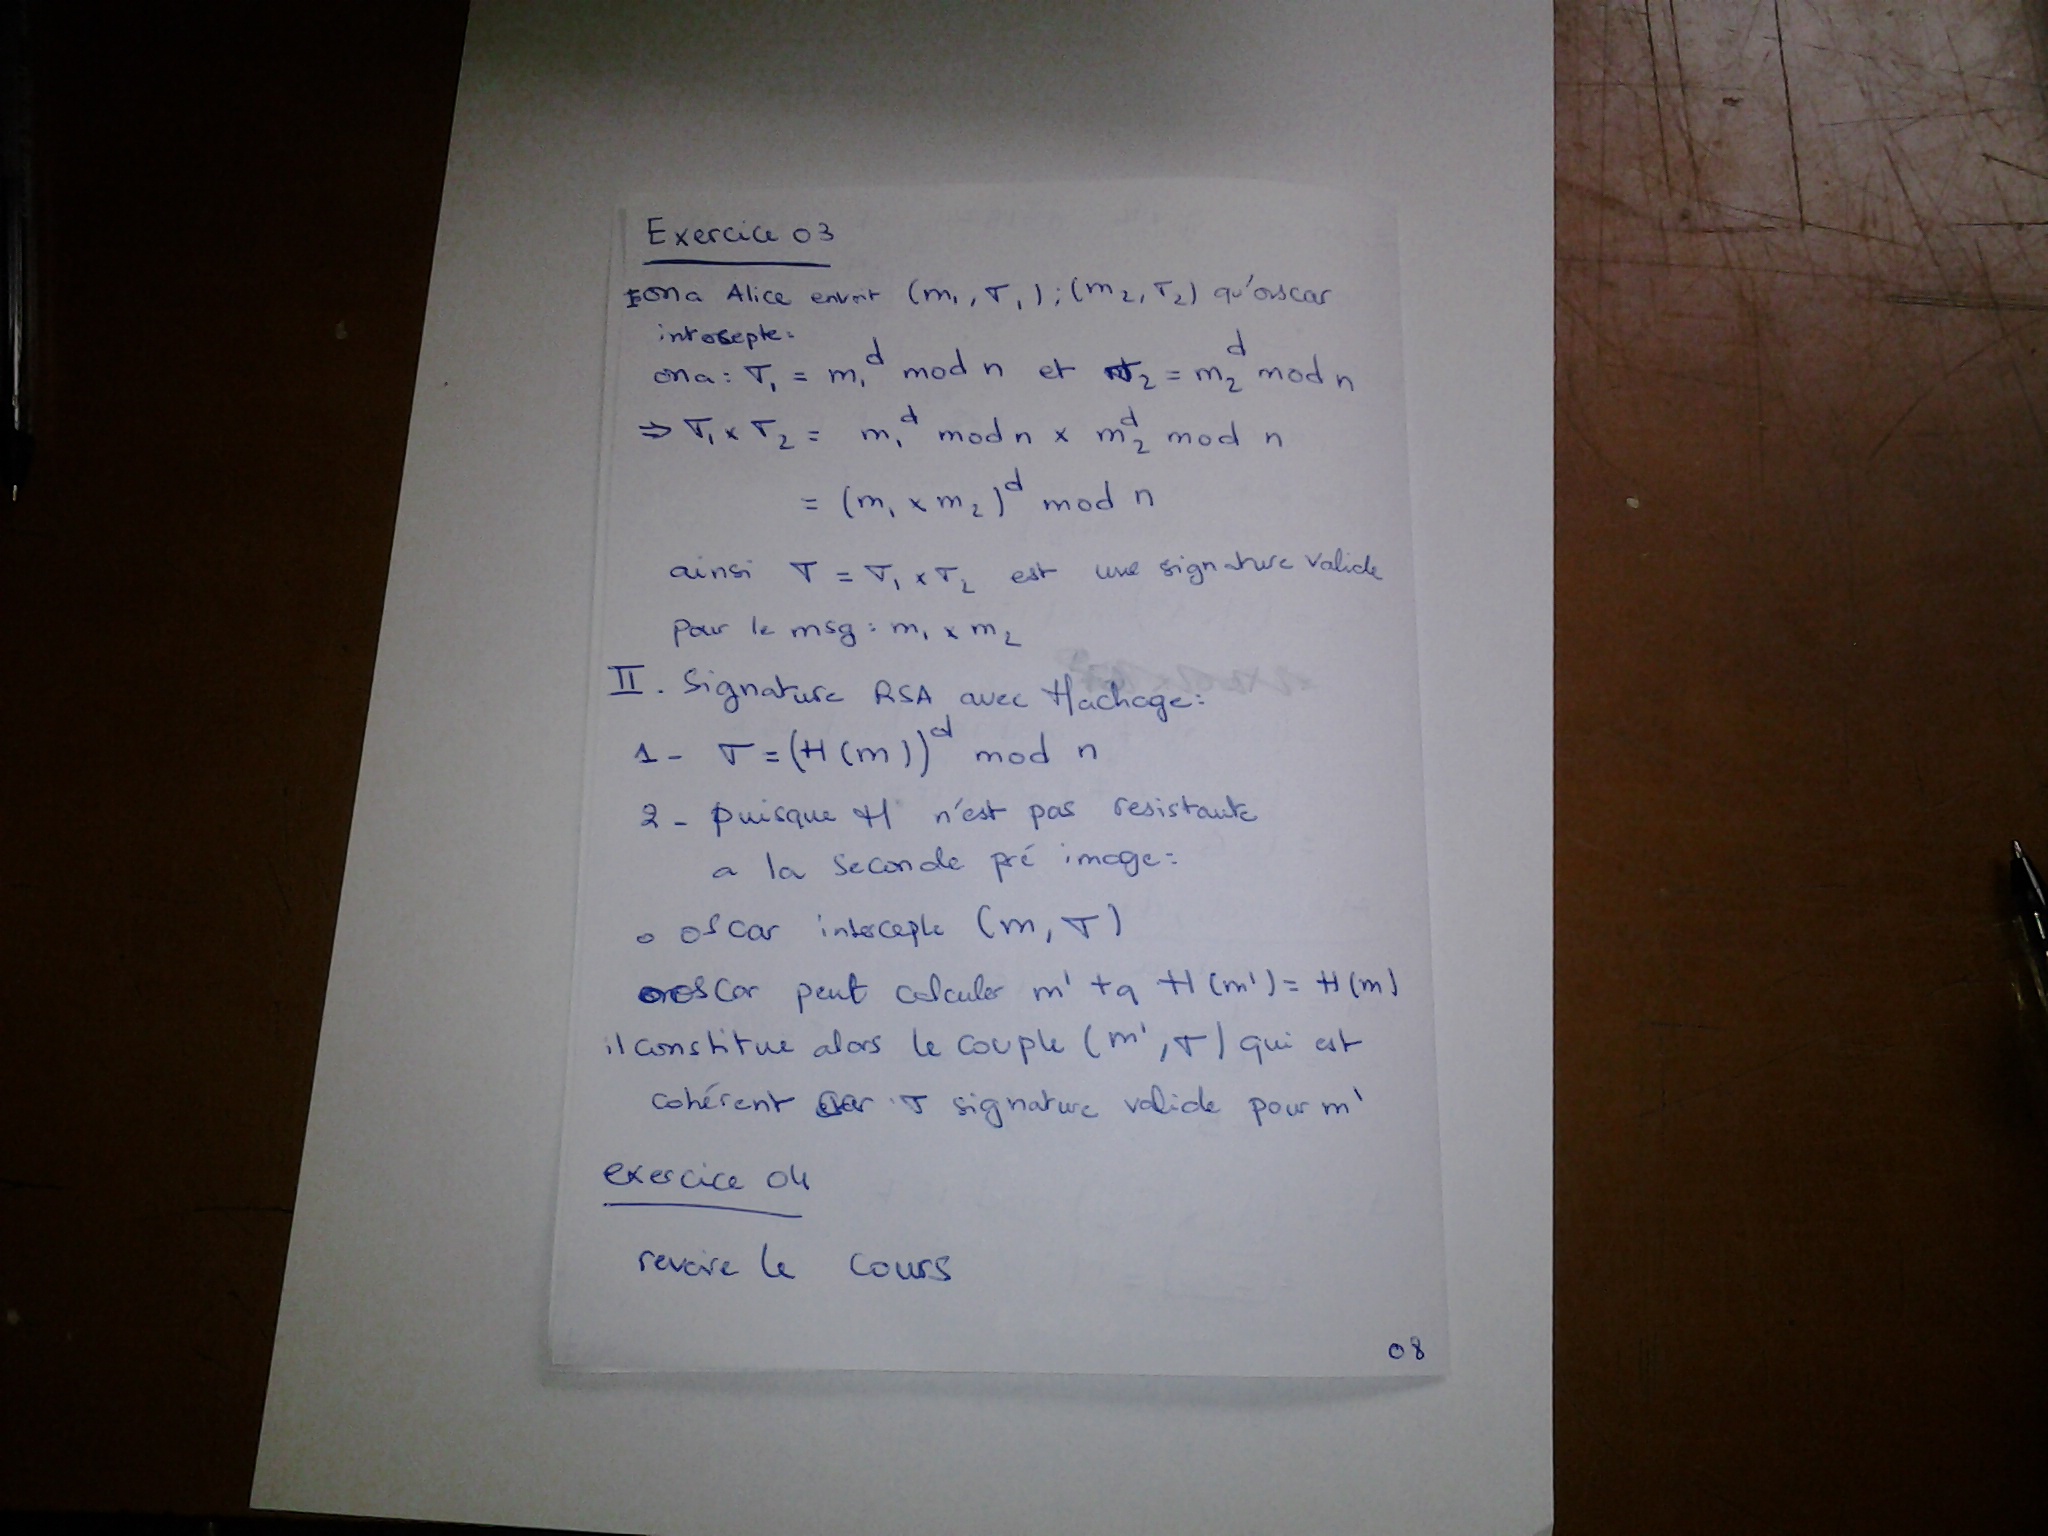 Exercice 03
I on a Alice envoit (m₁, σ₁); (m₂, σ₂) qu'oscar
intercepte:
on a: σ₁ = m₁^d mod n et σ₂ = m₂^d mod n
⇒ σ₁ x σ₂ = m₁^d mod n x m₂^d mod n
= (m₁ x m₂)^d mod n
ainsi σ = σ₁ x σ₂ est une signature valide
pour le msg: m₁ x m₂
II. Signature RSA avec Hachage:
1- σ = (H(m))^d mod n
2- puisque H n'est pas resistante
a la seconde pré image:
o oscar intercepte (m, σ)
oscar peut calculer m' tq H(m') = H(m)
il constitue alors le couple (m', σ) qui est
cohérent car σ signature valide pour m'
exercice 04
revoire le cours
08